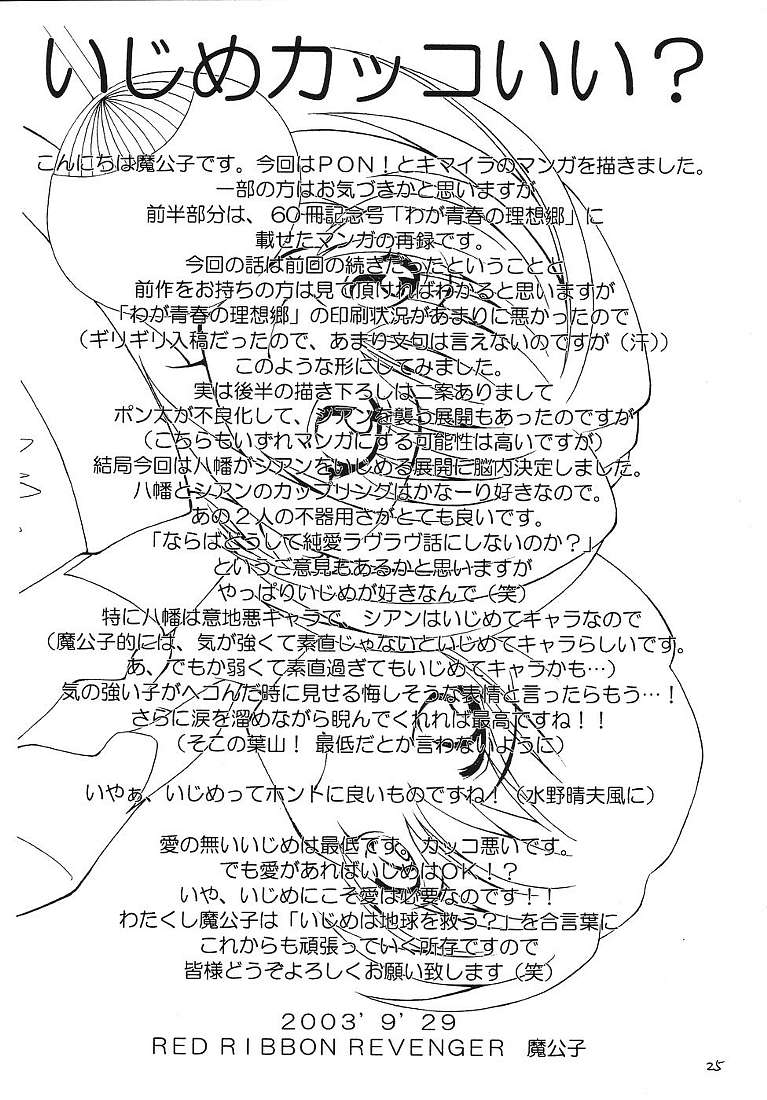 いじめカッコいい？
こんにちは魔公子です。今回はＰＯＮ！とキマイラのマンガを描きました。
一部の方はお気づきかと思いますが
前半部分は、６０冊記念号「わが青春の理想郷」に
載せたマンガの再録です。
今回の話は前回の続きだったということと
前作をお持ちの方は見て頂ければわかると思いますが
「わが青春の理想郷」の印刷状況があまりに悪かったので
（ギリギリ入稿だったので、あまり文句は言えないのですが（汗））
このような形にしてみました。
実は後半の描き下ろしは二案ありまして
ポン太が不良化して、シアンを襲う展開もあったのですが
（こちらもいずれマンガにする可能性は高いですが）
結局今回は八幡がシアンをいじめる展開に脳内決定しました。
八幡とシアンのカップリングはかなーり好きなので。
あの２人の不器用さがとても良いです。
「ならばどうして純愛ラヴラヴ話にしないのか？」
というご意見もあるかと思いますが
やっぱりいじめが好きなんで（笑）
特に八幡は意地悪キャラで、シアンはいじめてキャラなので
（魔公子的には、気が強くて素直じゃないといじめてキャラらしいです。
あ、でもか弱くて素直過ぎてもいじめてキャラかも…）
気の強い子がヘコんだ時に見せる悔しそうな表情と言ったらもう…！
さらに涙を溜めながら睨んでくれれば最高ですね！！
（そこの葉山！ 最低だとか言わないように）
いやぁ、いじめってホントに良いものですね！（水野晴夫風に）
愛の無いいじめは最低です。カッコ悪いです。
でも愛があればいじめはＯＫ！？
いや、いじめにこそ愛は必要なのです！！
わたくし魔公子は「いじめは地球を救う？」を合言葉に
これからも頑張っていく所存ですので
皆様どうぞよろしくお願い致します（笑）
２００３’９’２９
ＲＥＤ ＲＩＢＢＯＮ ＲＥＶＥＮＧＥＲ 魔公子
25